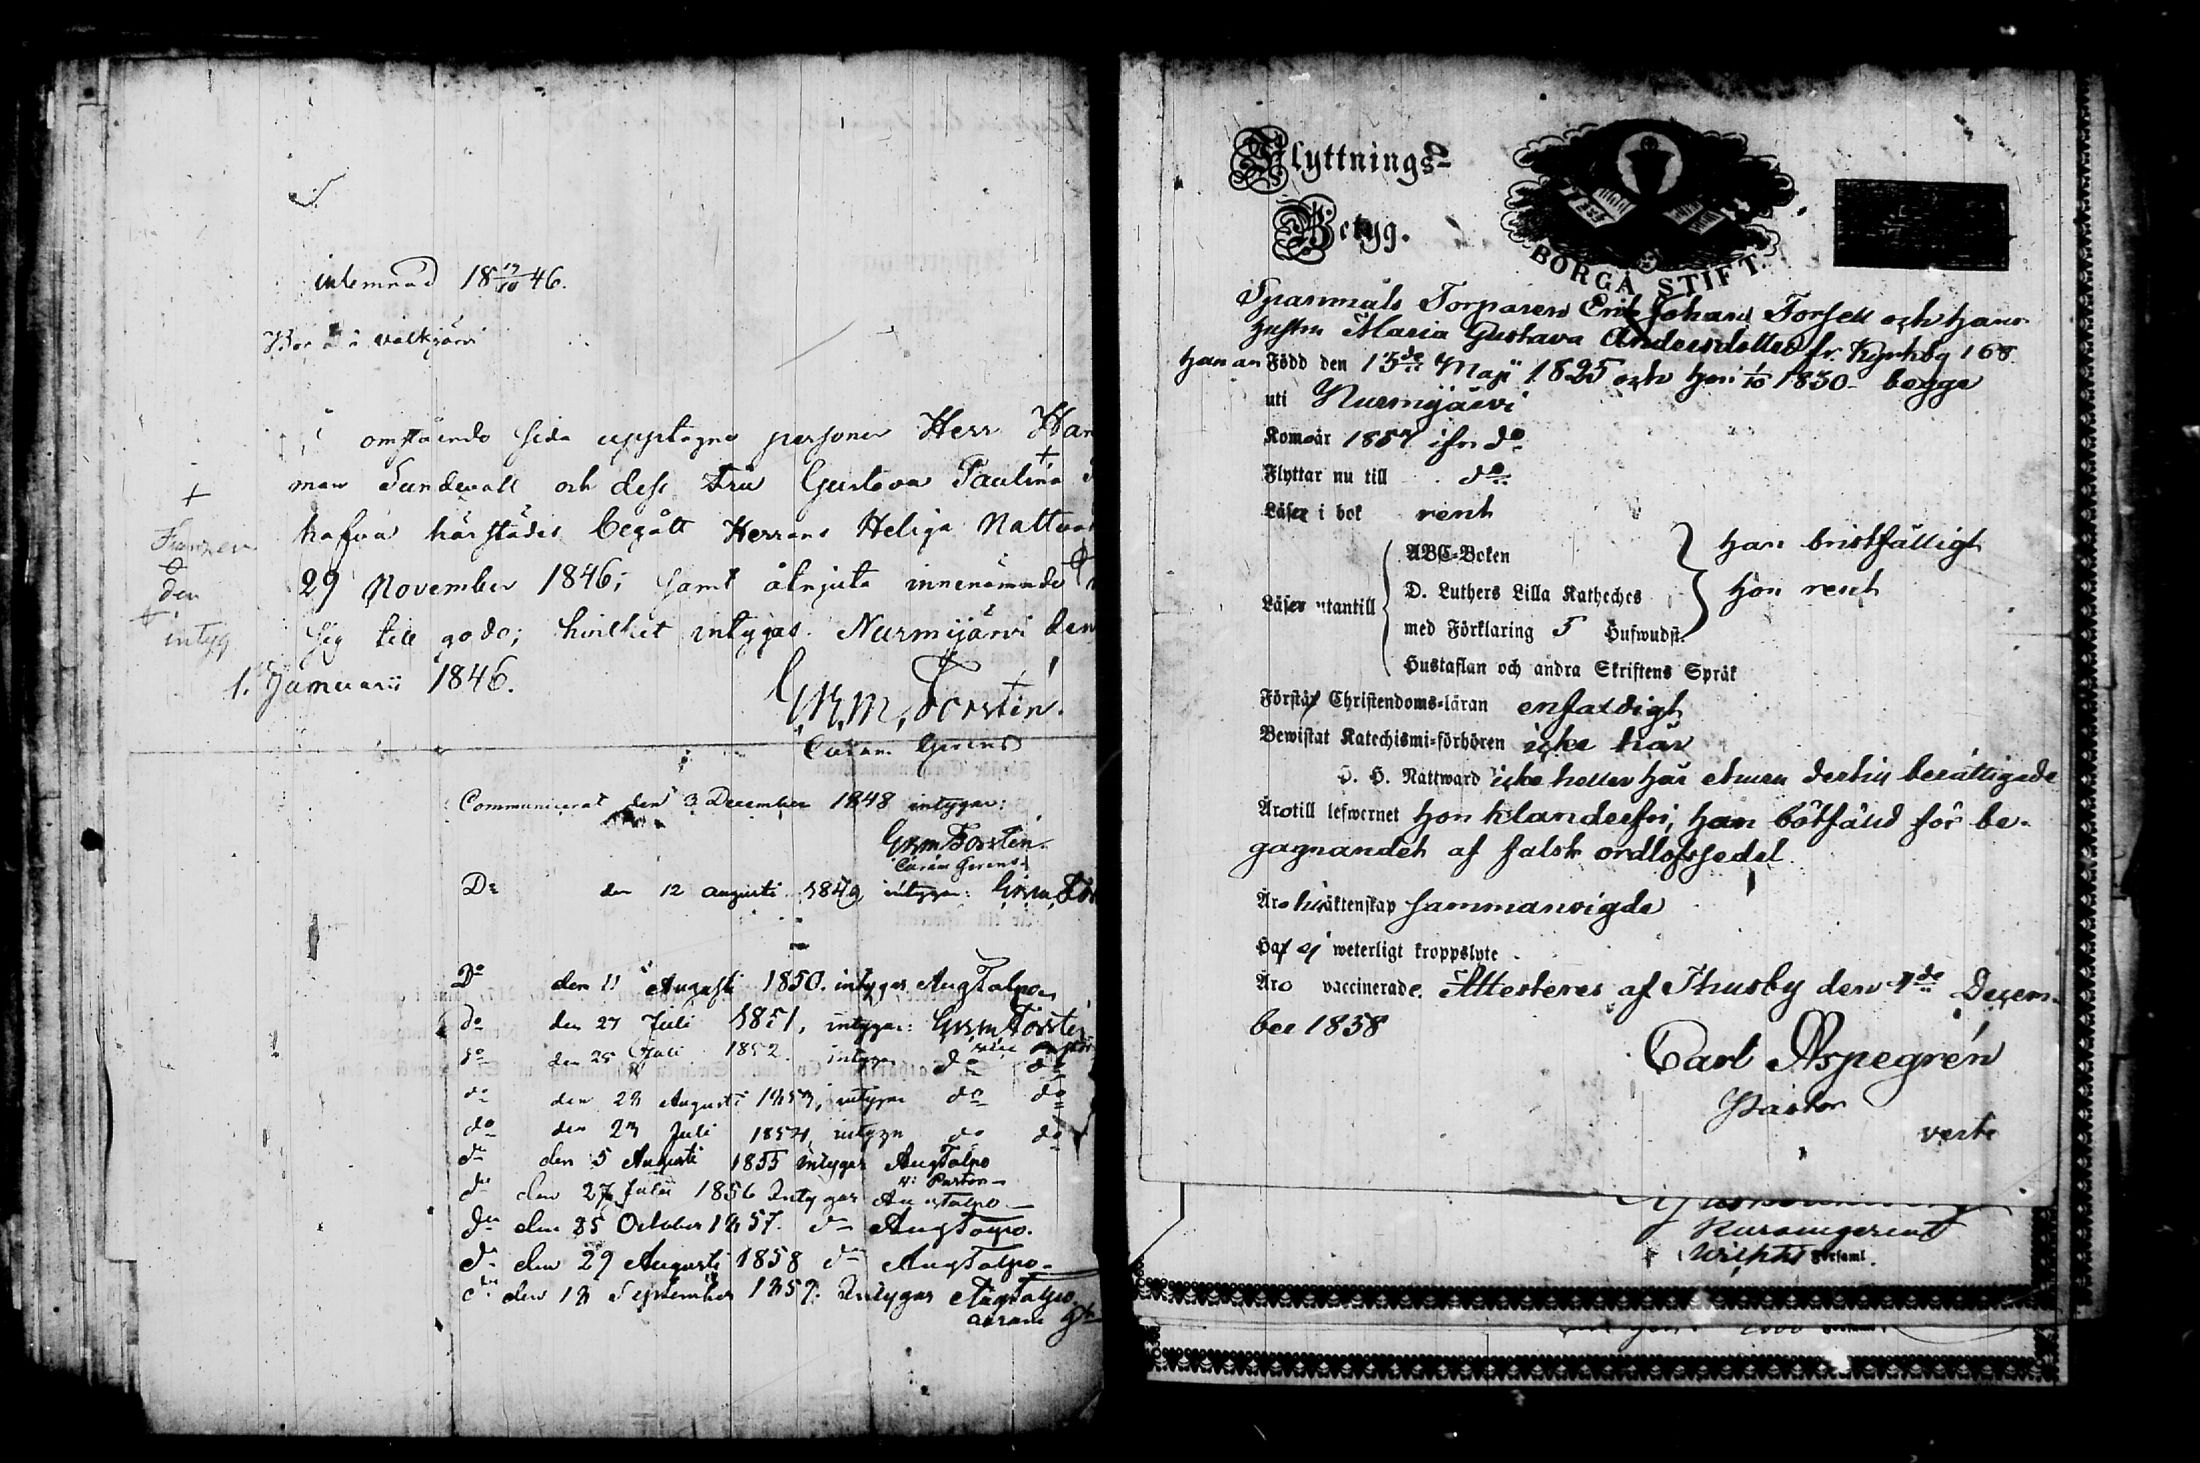 inlemnad 18 17/10 46.
Bor i Valkjärvi
omstående sida upptagne personer Herr Her
man Sundwall och dess Fru Gustava Paulina
hafva härstädes begått Herrans Heliga Nattva
29 November 1846; samt åtnjuta innenämnde
sig till godo; hvilket intygas. Nurmijärvi den
1. Januarii 1846.
G.W.m. Forstén.
Curam Gerens
den
intyg
Communicerat den 3 December 1848 intygar:
GWm Forstén.
Curam Gerens
Do den 12 Augusti 1849 intygar: GWm For
Do den 11 Augusti 1850. intygar AugTalpo
do den 27 Juli 1851, intygar: GWm Forstén
do den 25 Juli 1852. intygar do do
do den 28 Augusti 1853, intygar do do
do den 23 Juli 1854, intygar do do
do den 5 Augusti 1855 intygar AugTalpo
v: Pastor
do den 27 Julii 1856 Intygar AugTalpo
do den 25 October 1857. do AugTalpo.
do den 29 Augusti 1858 do AugTalpo
do den 18 September 1859. Intygar AugTalpo
curam gs
Flyttnings-
Betyg.
BORGÅ STIFT.
Spanmåls Torparen Erik Johan Forsell och hans
hustru Maria Gustava Andersdotter fr. Kyrkby 168
han är Född den 13de Maji 1825 och hon 1/10 1830 begge
uti Nurmijärvi
Kom år 1857 ifrn do
Flyttar nu till do
Läser i bok rent
Läser utantill
ABC-Boken
D. Luthers Lilla Katheches
med Förklaring 5 Hufwudst.
Hustaflan och andra Skriftens Språk
han bristfälligt
hon rent
Förstår Christendoms-läran enfaldigt
Bewistat Katechismi-förhören icke här
H. H. Nattward icke heller här ehuru dertill berättigade
Äro till lefwernet hon klanderfri, han bötfäld för be-
gagnandet af falsk ordlofssedel
Äro hi äktenskap sammanvigde
Haf ej weterligt kroppslyte
Äro vaccinerade. Attesteres af Thusby den 4de Decem-
ber 1858
Carl Aspegrén
Pastor
verte
Kuramgerent
i Wichtis Församl.